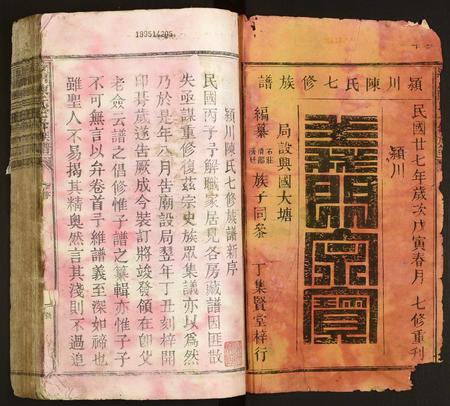 潁川陳氏七修族譜
民國廿七年歲次戊寅春月 七修重刊
潁川
義門宗寶
局設興國大塘
編纂 族子同參 丁集賢堂梓行
199514205
潁川陳氏七修族譜新序
民國丙子予解職家居見各房藏譜因匪散
失亟謀重修復茲宗史族眾集議亦以為然
乃於是年八月告廟設局翌年丁丑刻梓開
印朞歲遂告厥成今裝訂將竣發領在卽父
老僉云譜之倡修惟子譜之纂輯亦惟子子
不可無言以弁卷首予維譜義至深如禘也
雖聖人不易揭其精奥然言其淺則不過追